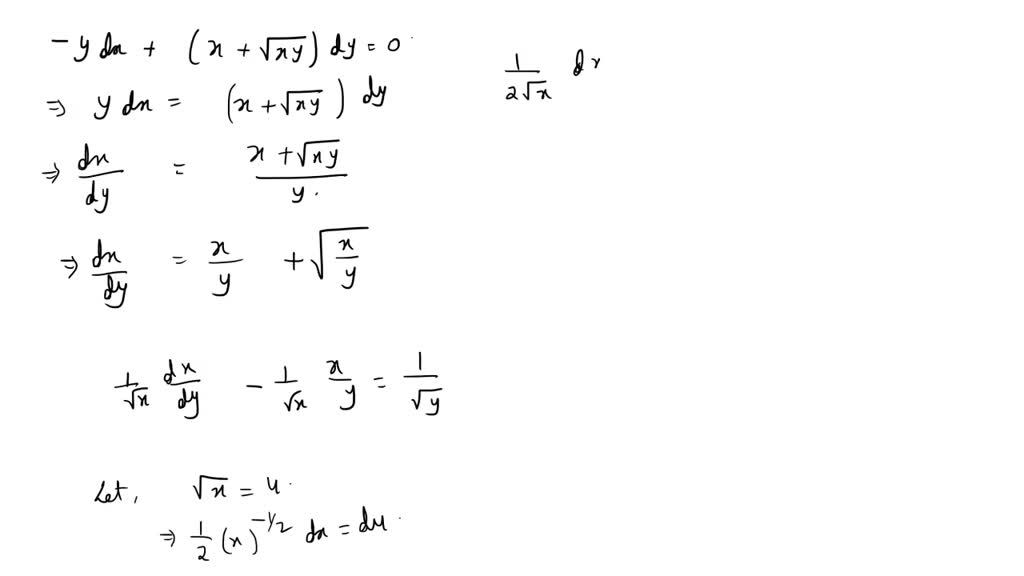 -y dx + (x + √xy) dy = 0
⇒ y dx = (x + √xy) dy
⇒ dx/dy = (x + √xy)/y.
⇒ dx/dy = x/y + √(x/y)
1/√x dx/dy - 1/√x x/y = 1/√y
Let, √x = u.
⇒ 1/2 (x)^-1/2 dx = du.
1/(2√x) dx